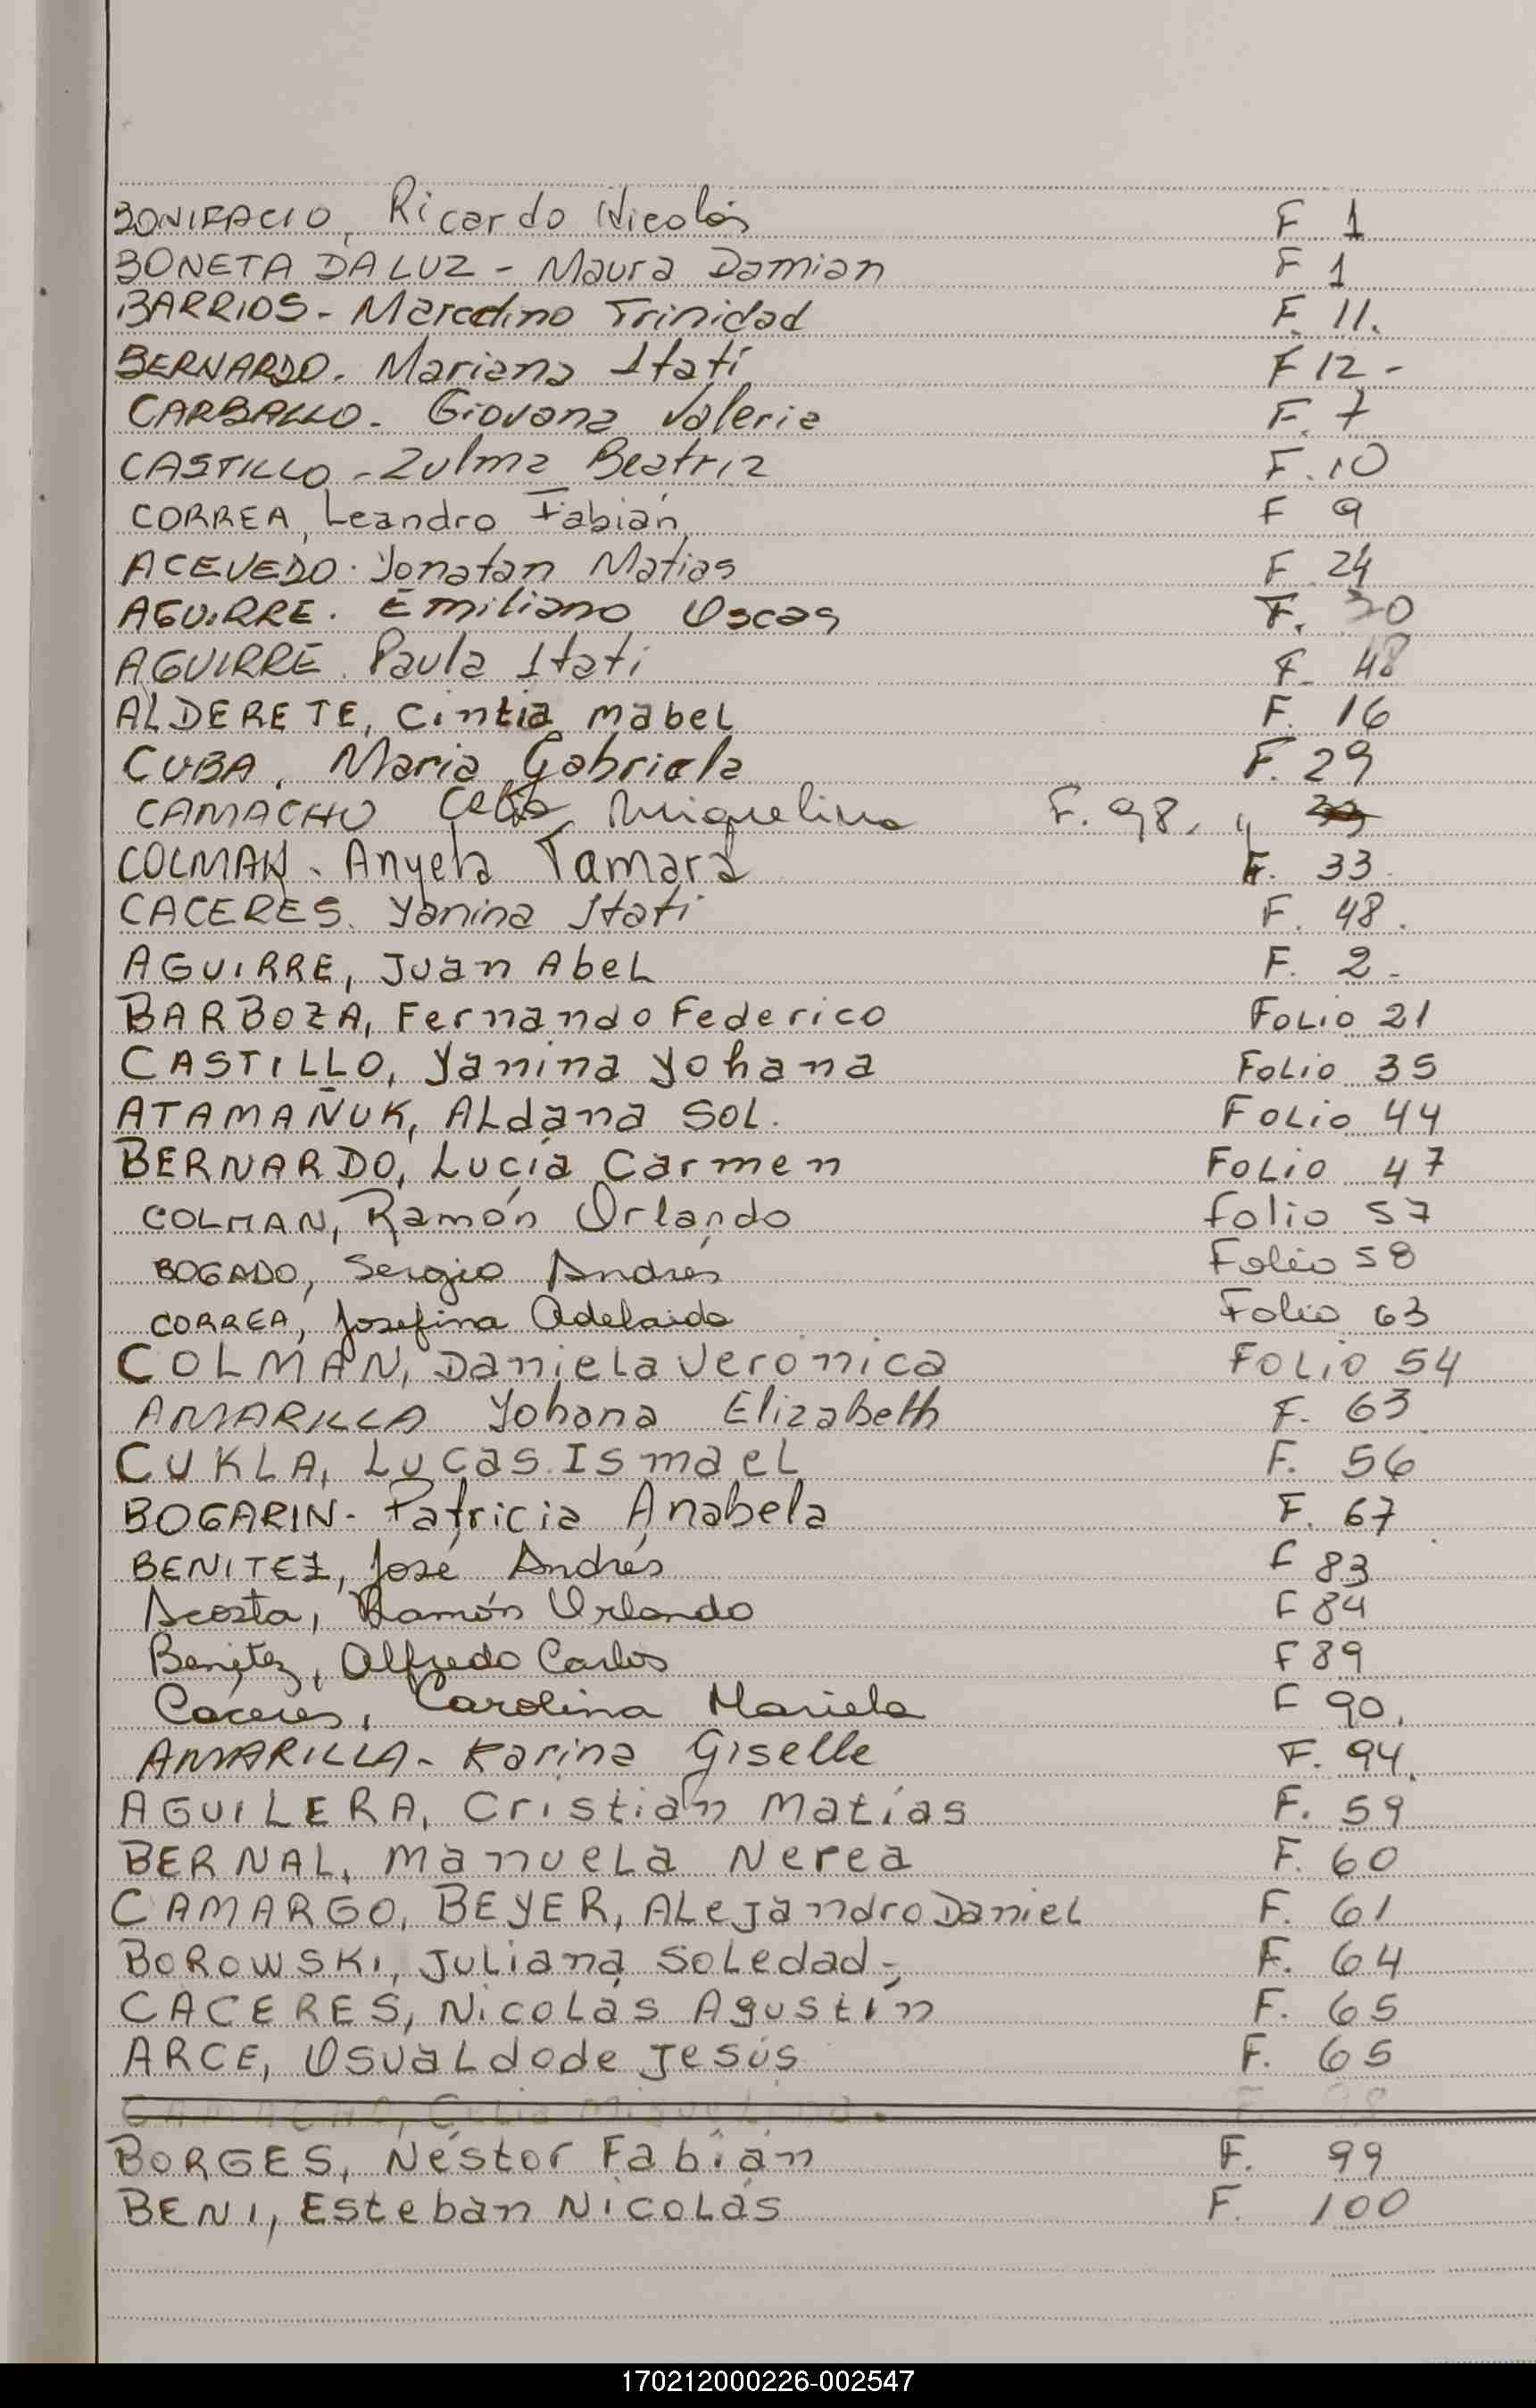 BONIFACIO, Ricardo Nicolás F 1
BONETA DA LUZ - Maura Damian F 1
BARRIOS - Marcelino Trinidad F. 11.
BERNARDO. Mariana Itatí F 12 -
CARBALLO. Giovana Valeria F. 7
CASTILLO - Zulma Beatriz F. 10
CORREA, Leandro Fabián F 9
ACEVEDO. Yonatan Matias F. 24
AGUIRRE. Emiliano Oscar F. 30
AGUIRRE. Paula Itati F. 48
ALDERETE, Cintia Mabel F. 16
CUBA, Maria Gabriela F. 29
CAMACHO Celia Miguelina F. 98. "
COLMAN. Anyela Tamara F. 33
CACERES. Yanina Itatí F. 48.
AGUIRRE, Juan Abel F. 2 -
BARBOZA, Fernando Federico Folio 21
CASTILLO, Yanina Yohana Folio 35
ATAMAÑUK, Aldana Sol. Folio 44
BERNARDO, Lucía Carmen Folio 47
COLMAN, Ramón Orlando folio 57
BOGADO, Sergio Andrés Folio 58
CORREA, Josefina Adelaida Folio 63
COLMAN, Daniela Veronica FOLIO 54
AMARILLA Yohana Elizabeth F. 63
CUKLA, Lucas Ismael F. 56
BOGARIN - Patricia Anabela F. 67
BENITEZ, José Andrés F 83
Acosta, Ramón Orlando F 84
Benitez, Alfredo Carlos F 89
Caceres, Carolina Mariela F 90.
AMARILLA - Karina Giselle F. 94.
AGUILERA, Cristian Matías F. 59
BERNAL, Manuela Nerea F. 60
CAMARGO, BEYER, Alejandro Daniel F. 61
BOROWSKI, Juliana Soledad - F. 64
CACERES, Nicolás Agustín F. 65
ARCE, Osualdo de Jesús F. 65
CAMACHO, Celia Miguelina. F 98
BORGES, Néstor Fabián F. 99
BENI, Esteban Nicolás F. 100
170212000226-002547